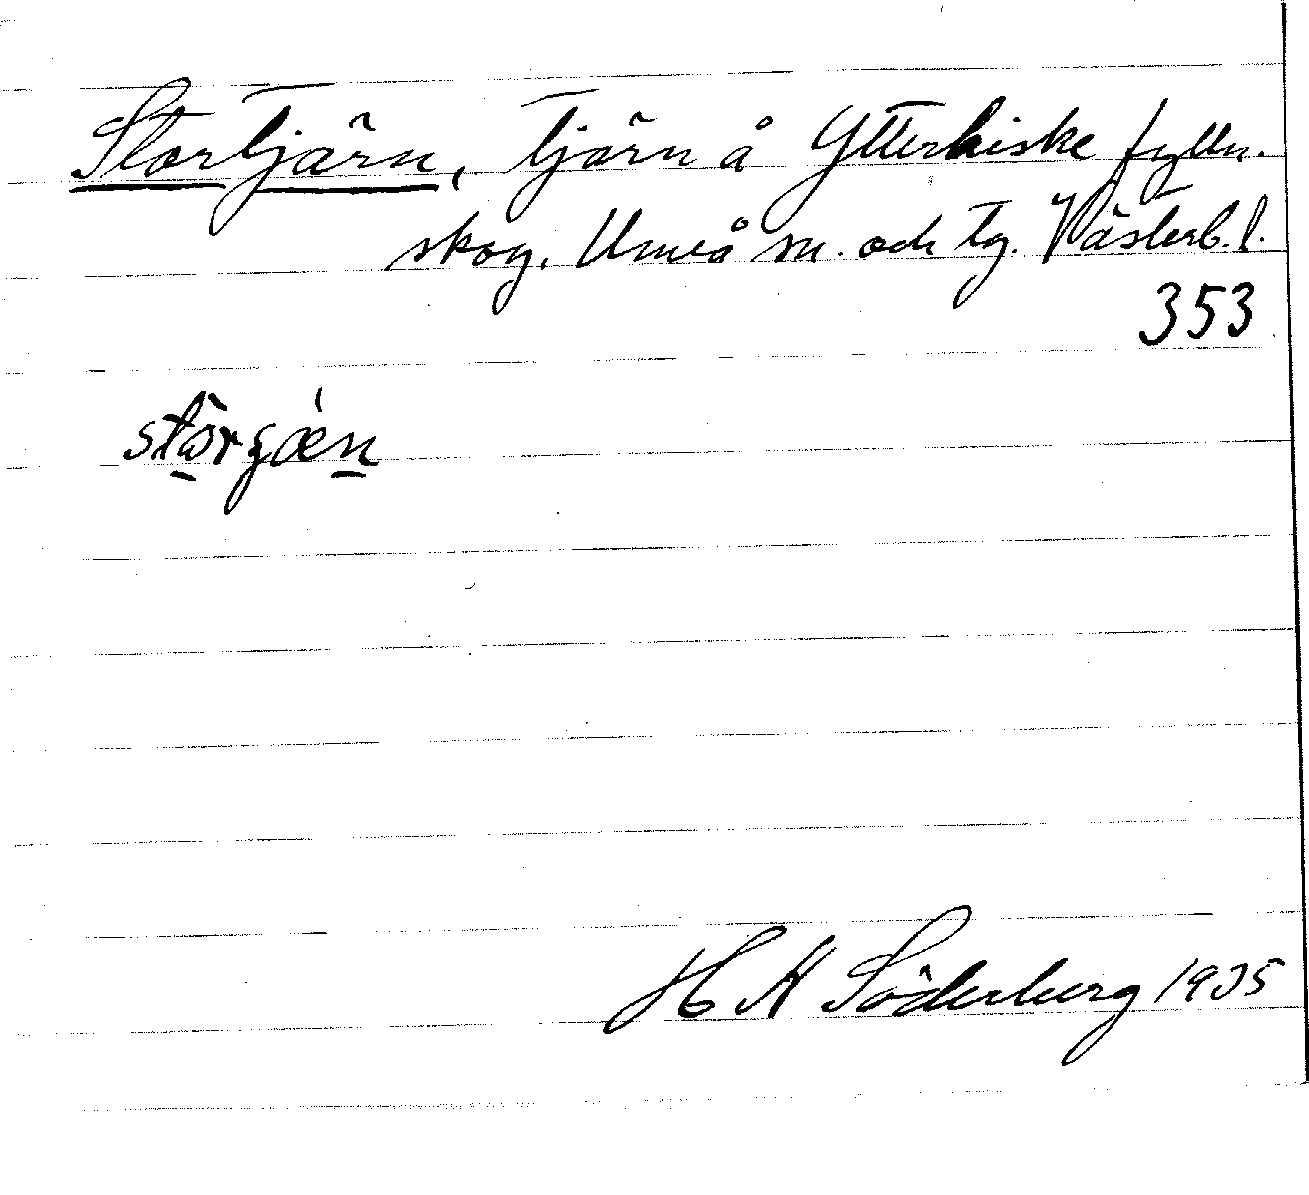 Stortjärn, Tjärn å Ytterhiske fylln.
skog. Umeå sn. och tg. Västerb. l.
353
H H Söderberg 1935